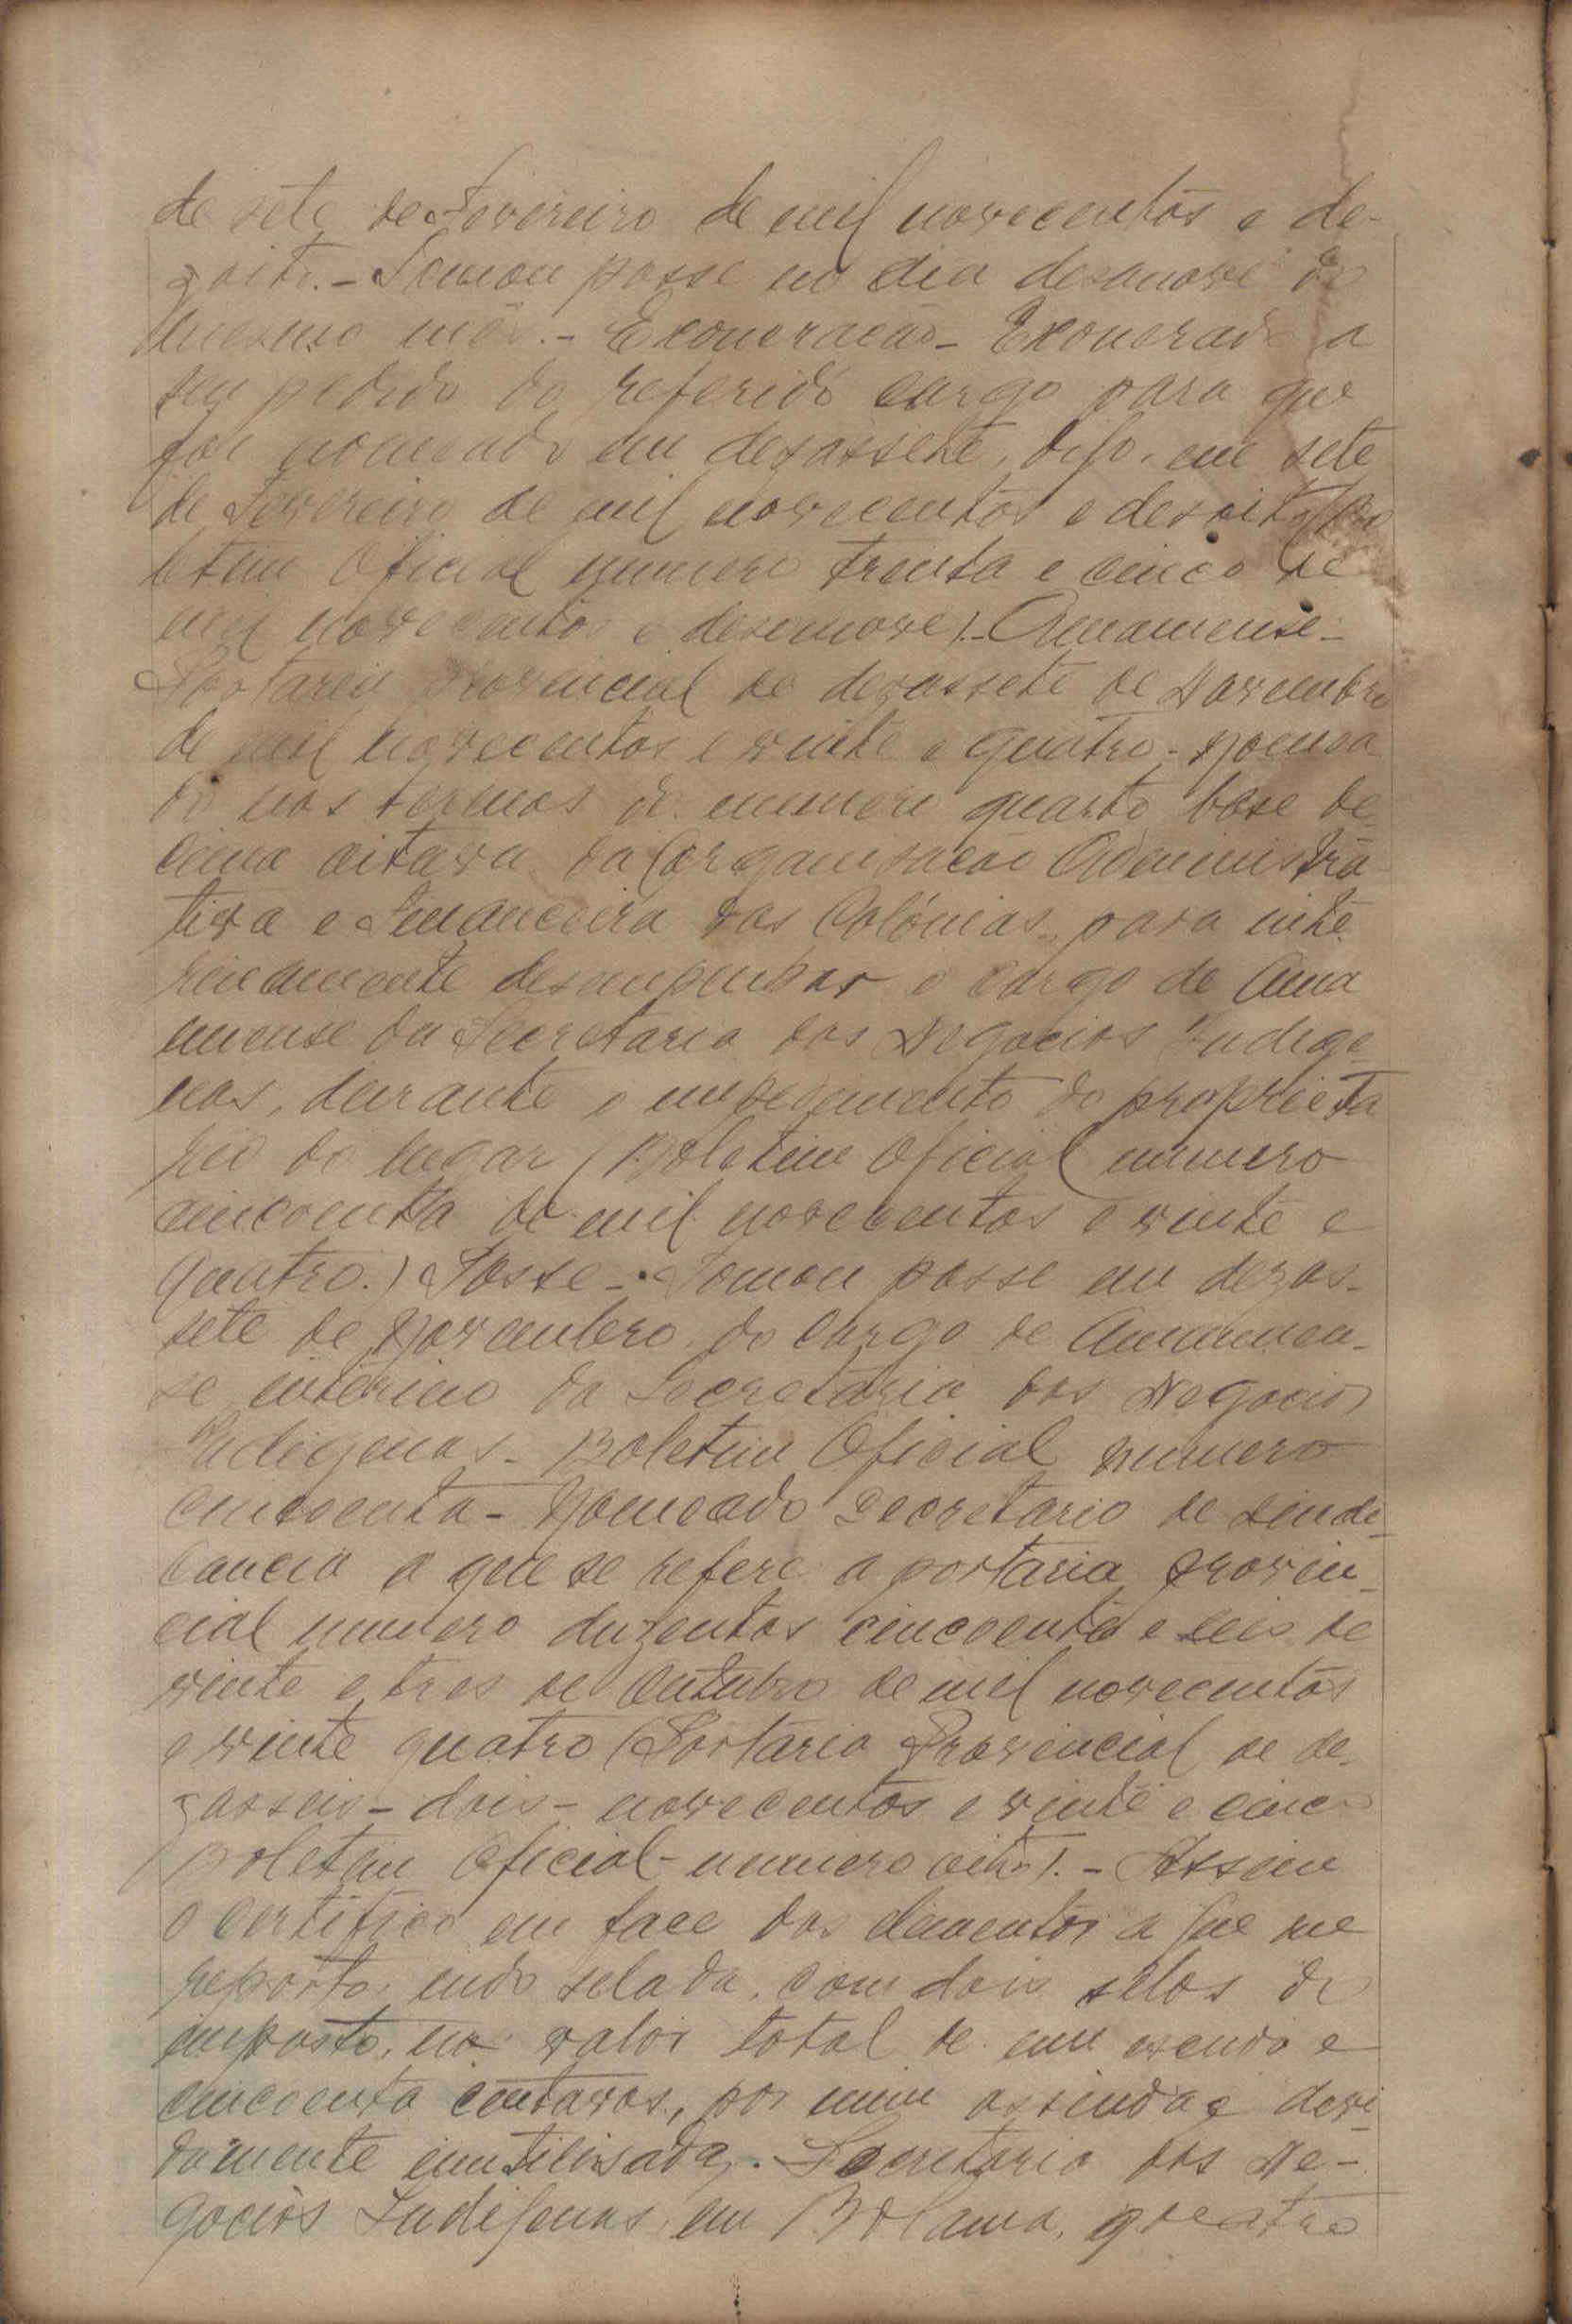 de sete de Fevereiro de mil novecentos e de-
zoito.- Tomou posse no dia desanove do
mesmo mês.- Exoneracão- Exonerado a
seu pedido do referido cargo para que
foi nomeado em dezassete, digo, em sete
de Fevereiro de mil novecentos e desoito (Bo
letim Oficial numero trinta e cinco de
mil novecentos e desenove).- Amanuense-
Portaria provincial de dezassete de Novembro
de mil novecentos e vinte e quatro- Nomea
do nos termos do numero quarto base de
cima oitava da Organisacão Administra
tiva e Financeira das Colónias, para inte
rinamente desempenhar o cargo de Ama
nuense da Secretaria dos Negocios Indige
nas, durante o impedimento do proprieta
rio do lugar (Boletim Oficial numero
cincoenta de mil novecentos e vinte e
quatro.) Posse- Tomou posse em dezas-
sete de Novembro do cargo de Amanuen-
se interino da Secretaria dos Negocios
Indigenas- Boletim Oficial numero
cincoenta- Nomeado Secretario de sindi-
cancia a que se refere a portaria provin-
cial numero duzentos cincoenta e seis de
vinte e tres de Outubro de mil novecentos
e vinte quatro (Portaria Provincial de de-
zasseis- dois- novecentos e vinte e cinco
Boletim Oficial- numero oito).- Assim
o certifico em face dos elementos a que me
reporto, indo selada, com dois selos de
imposto, no valor total de um escudo e
cincoenta centavos, por mim assinda e devi
damente inutilisada. Secretaria dos Ne-
gocios Indigenas, em Bolama, quatro